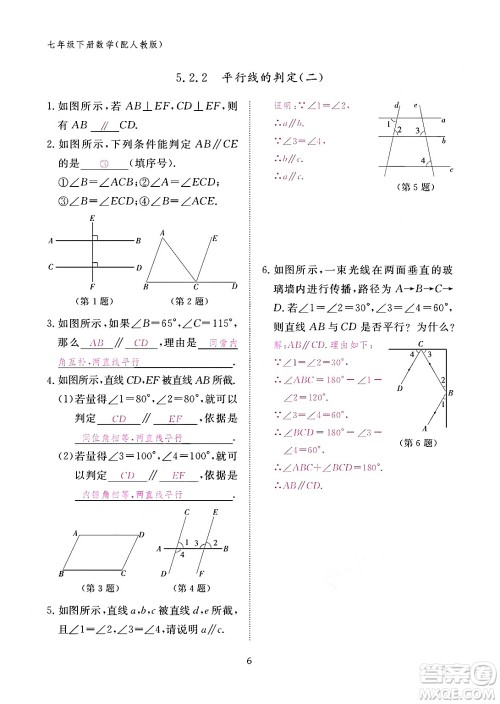 七年级下册数学(配人教版)
5.2.2 平行线的判定(二)
1. 如图所示,若 AB⊥EF,CD⊥EF,则
有 AB ∥ CD.
2. 如图所示,下列条件能判定 AB∥CE
的是 ③ (填序号).
①∠B=∠ACB;②∠A=∠ECD;
③∠B=∠ECD;④∠A=∠B.
E
A B
C D
F
(第 1 题)
A E
B C D
(第 2 题)
3. 如图所示,如果∠B=65°,∠C=115°,
那么 AB ∥ CD ,理由是 同旁内
角互补,两直线平行 .
4. 如图所示,直线 CD,EF 被 AB 所截.
(1)若量得∠1=60°,∠2=60°,就可以
判定 CD ∥ EF ,依据是
同位角相等,两直线平行 .
(2)若量得∠3=60°,∠4=60°,就可以
判定 CD ∥ EF ,依据是
内错角相等,两直线平行 .
A D
B C
(第 3 题)
C E
A 1 2 3 B
4
D F
(第 4 题)
5. 如图所示,直线 a,b,c 被直线 d,e 所
截,且∠1=∠2,∠3=∠4,请说明 a∥c.
证明:∵∠1=∠2,
∴a∥b.
∵∠3=∠4,
∴b∥c.
∴a∥c.
d e
1 a
3 2 b
4 c
(第 5 题)
6. 如图所示,一束光线在两面垂直的玻
璃墙内进行传播,路径为 A→B→C→
D.若∠1=30°,∠2=30°,∠4=60°,
则直线 AB 与 CD 是否平行?为什么?
解:AB∥CD.理由如下:
∵∠1=∠2=30°,
∴∠ABC=120°.
∵∠3=∠4=60°,
∴∠BCD=60°.
∴∠ABC+∠BCD=180°.
∴AB∥CD.
C
D
B
A
(第 6 题)
6